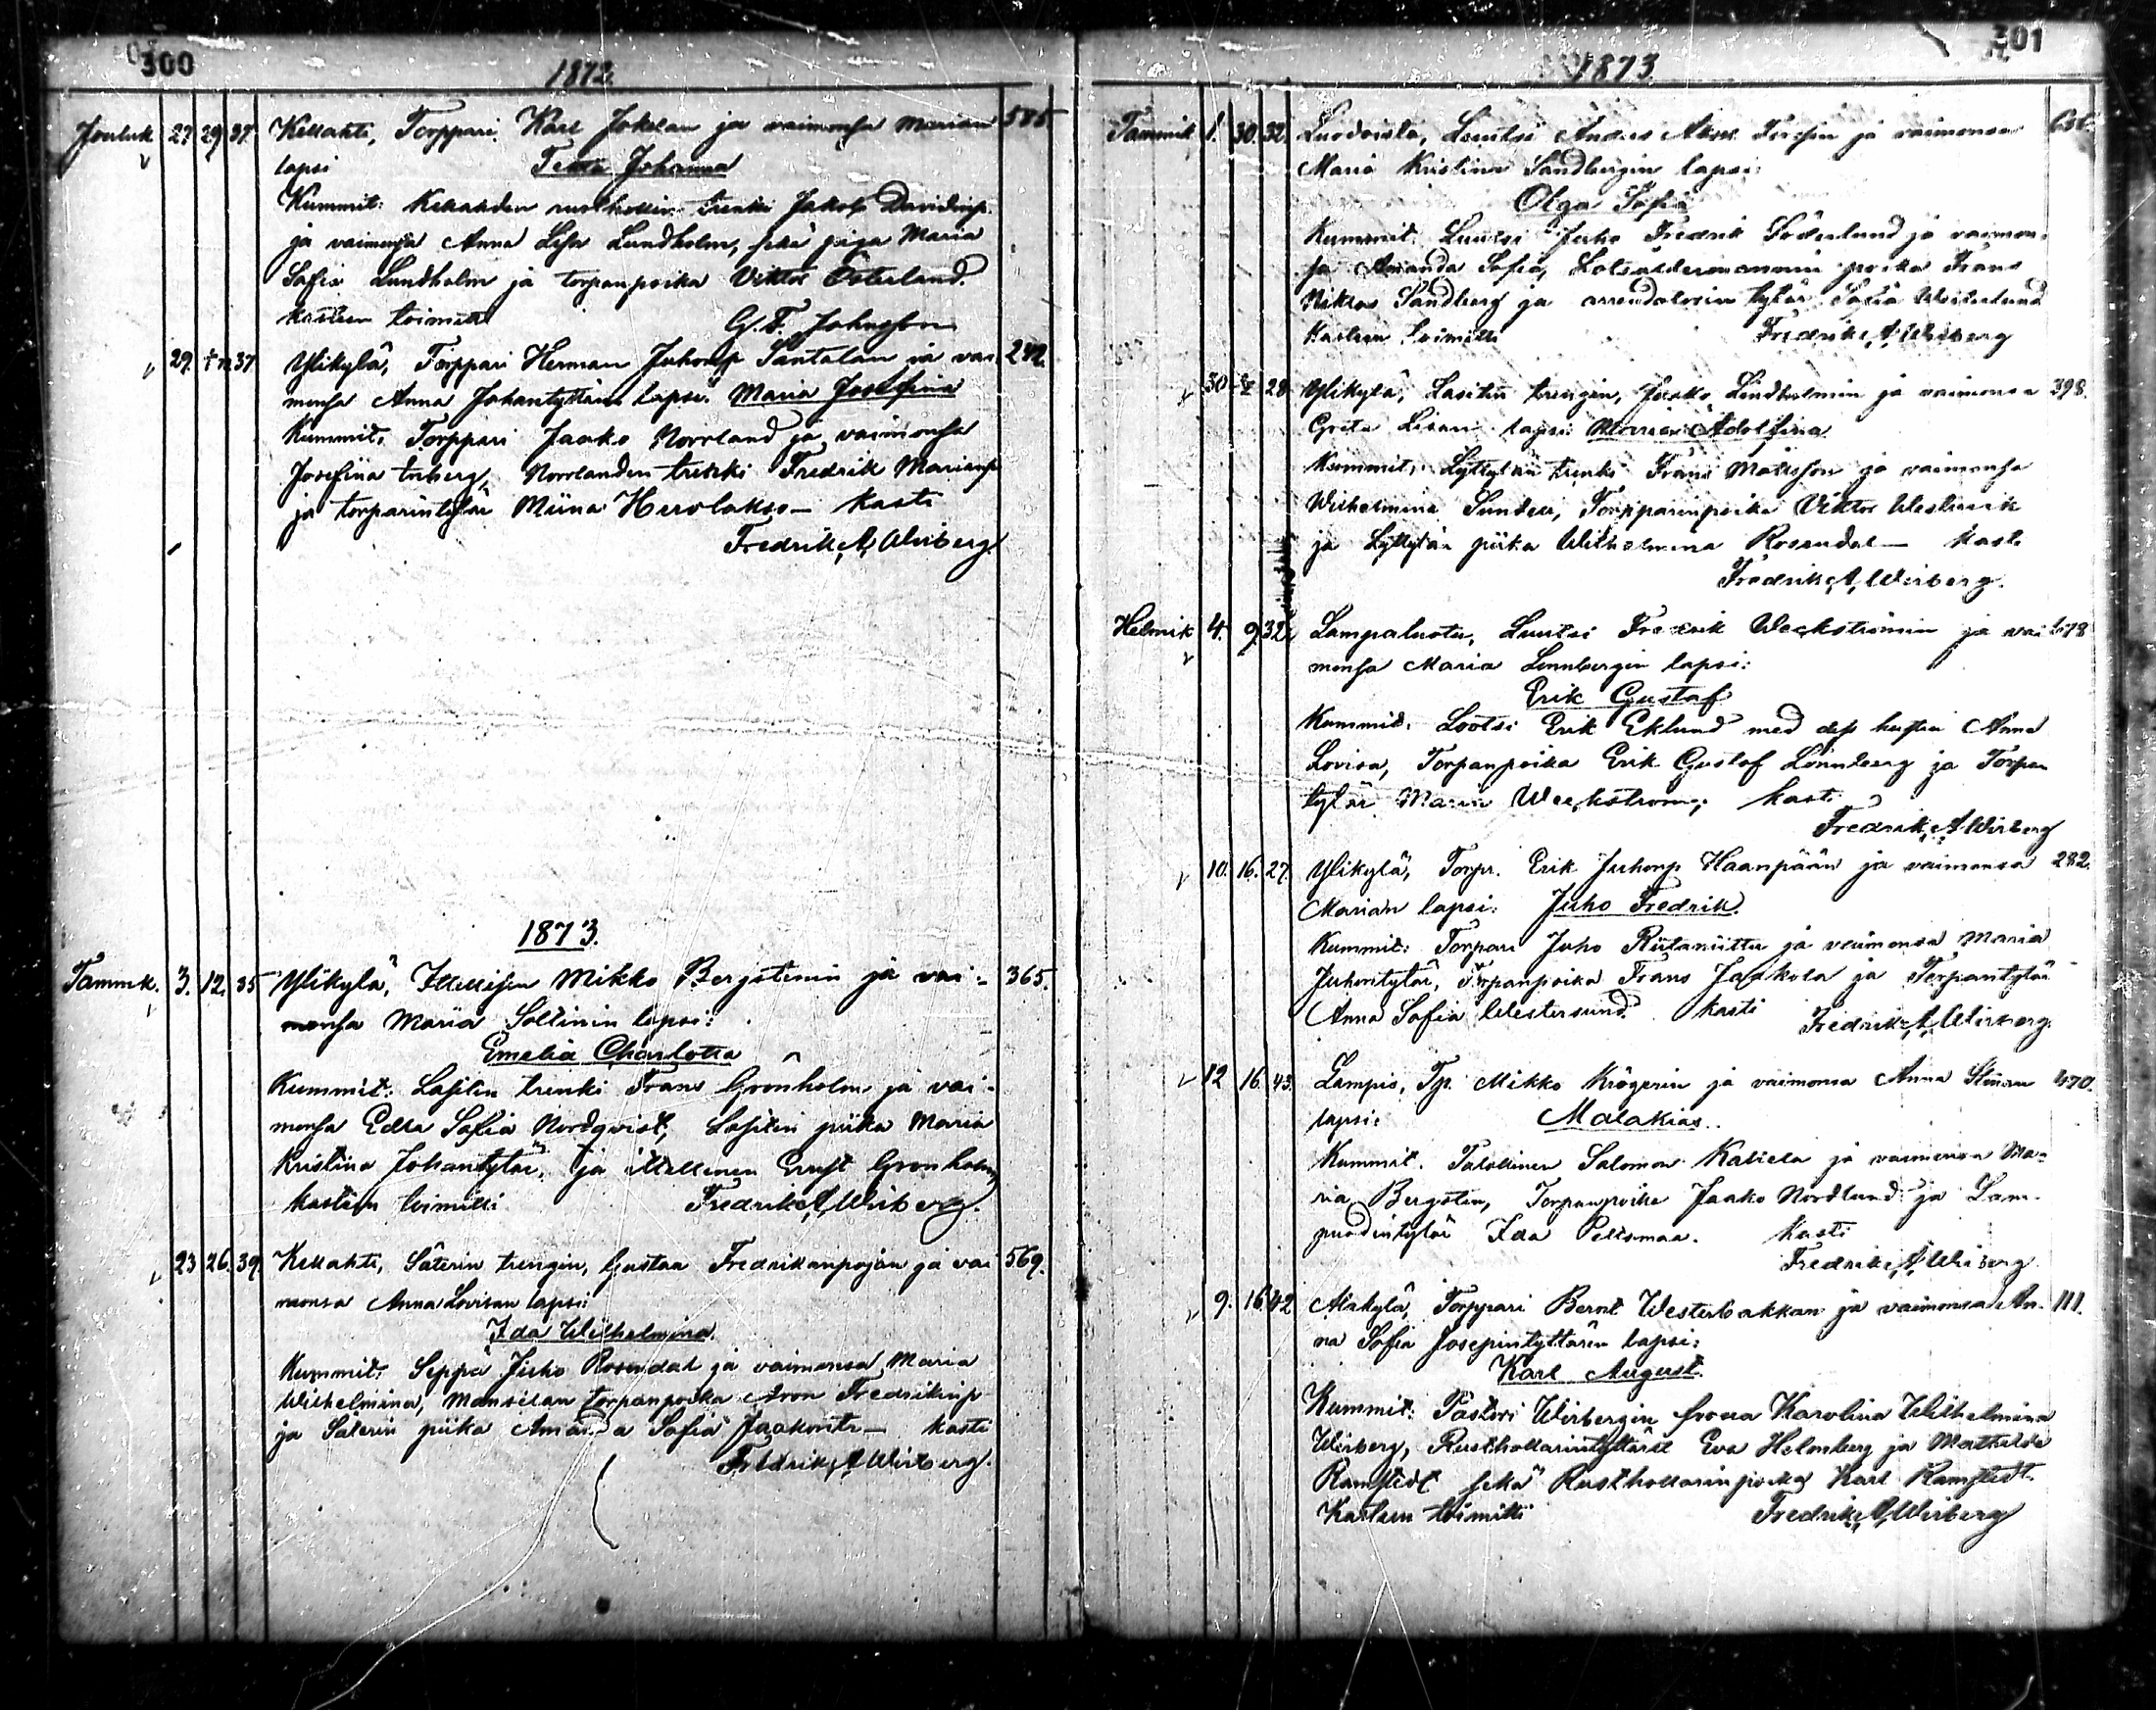 300
1872
Jouluk 27 29 37 Kellahti, Torppari Karl Jokelan ja vaimonsa Marian 585
lapsi Johanna
Kummit: Kellahden rusthollin trenki Jakob Davidinp.
ja vaimonsa Anna Lisa Lundholm, sekä piga Maria
Sofia Lundholm ja torpanpoika Viktor Österlund.
kasteen toimitti G. F. Johnsson
29. 37 Ylikylä, Torppari Herman Juhonp Santalan ja vai 242.
monsa Anna Johantyttären lapsi: Maria Josefina
Kummit: Torppari Jaako Norrland ja vaimonsa
Josefiina Norrlanden trenki Fredrik
ja torparintytär Miina kasti
Fredrik A. Wirberg
1873.
Tammik. 3. 12. 35 Ylikylä, Itsellisen Mikko Bergstenin ja vai- 365.
monsa Maria lapsi:
Emelia Charlotta
Kummit: Lasitin trenki Frans Grönholm ja vai-
monsa Edla Sofia Nordqvist, Lasitin piika Maria
Kristina Johantytär, ja itsellinen Ernst Grönholm
kasteen toimitti Fredrik A. Wirberg.
23 26. 39. Kellahti, Säterin trengin, Gustaa Fredrikanpojan ja vai 569.
monsa Anna Lovisan lapsi:
Ida Wilhelmina.
Kummit: Seppä Juho Rosendal ja vaimonsa Maria
Wilhelmina, torpanpoika Aron Fredrikinp
ja Säterin piika Amanda Sofia Jaakontr— kasti
Fredrik A. Wirberg.
301
1873
Tammik 1. 30. 32 Luodoista, Luutsi Anders ja vaimonsa
Maria Kristina Sandbergin lapsi:
Olga Sofia
Kummit: Luutsi Juho Fredrik Söderlund ja vaimon-
sa Amanda Sofia, Lotsåldermannin poika Frans
Niklas Sandberg ja arrendatorin tytär Sofia Westerlund
Kasteen toimitti Fredrik A. Wirberg
30 28 Ylikylä, Lasitin trengin, Jaako Lindholmin ja vaimonsa 398.
Greta Lisan lapsi: Maria Adolfina
Kummit: Lyttylän trenki Frans Matsson ja vaimonsa
Wilhelmina Torpparinpoika Viktor
ja Lyttylän piika Wilhelmina Rosendal— kasti
Fredrik A. Wirberg.
Helmik 4. 9. 32. Lampaluoto, Luutsi Fredrik Weckströmin ja vai 678
monsa Maria Lönnbergin lapsi:
Erik Gustaf
Kummit: Lootsi Erik Eklund med dess hustru Anna
Lovisa, Torpanpoika Erik Gustaf Lönnberg ja Torpan
tytär Maria Weckström; kasti
Fredrik A. Wirberg
10. 16. 27. Ylikylä, Torpr. Erik Juhonp Haanpään ja vaimonsa 282.
Marian lapsi: Juho Fredrik.
Kummit: Torpari Juho Riitaniittu ja vaimonsa Maria
Juhontytär, Torpanpoika Frans Jaakola ja Torpantytär
Anna Sofia Westersund kasti Fredrik A. Wirberg.
12 16. 43. Lampis, Tp. Mikko Krögerin ja vaimonsa Anna Stinan 470.
lapsi: Malakias.
Kummit. Talollinen Salomon ja vaimonsa Ma-
ria Bergsten, Torpanpoika Jaako Nordlund ja Lam-
puodintytär Ida Peltomaa. kasti
Fredrik A. Wirberg
9. 16 42 Alakylä, Torppari Bernt Westerbakkan ja vaimonsa An- 111.
na Sofia Josepintyttären lapsi:
Karl August.
Kummit: Pastori Wirbergin frouva Karolina Wilhelmina
Wirberg, Rusthollarintyttäret Eva Holmberg ja Mathilda
Ramstedt sekä Rusthollarinpoika Karl Ramstedt.
Kasteen toimitti Fredrik A. Wirberg